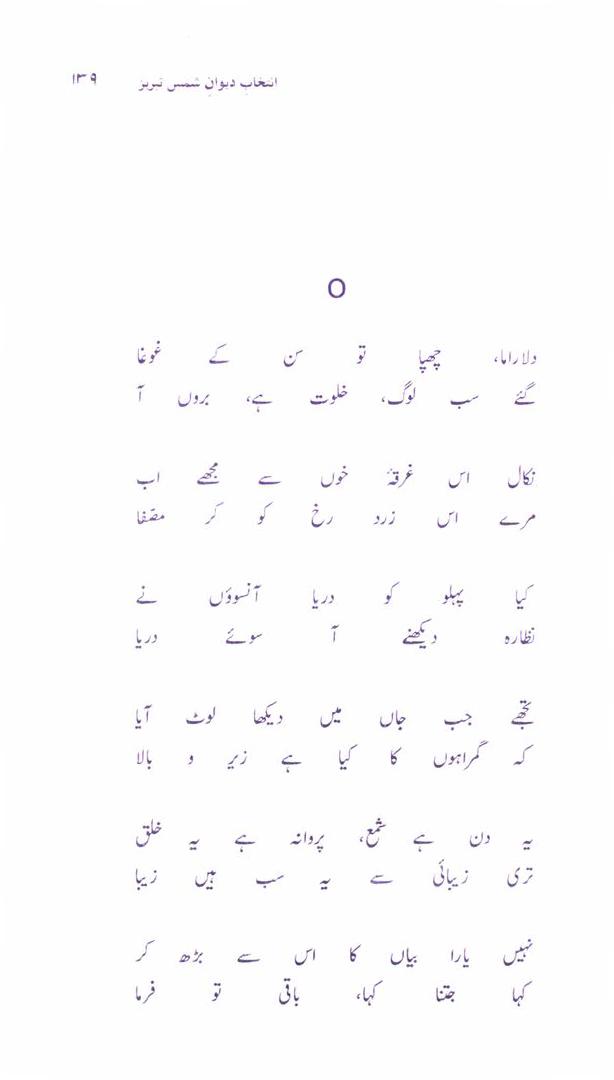 انتخاب دیوانِ شمس تبریز ۱۳۹
O
دلاراما، چھپا تو سن کے غوغا
گئے سب لوگ، خلوت ہے، بروں آ
نکال اس غرقۂ خوں سے مجھے اب
مرے اس زرد رخ کو کر مصّفا
کیا پہلو کو دریا آنسوؤں نے
نظارہ دیکھنے آ سوئے دریا
تجھے جب جاں میں دیکھا لوٹ آیا
کہ گمراہوں کا کیا ہے زیر و بالا
یہ دن ہے شمع، پروانہ ہے یہ خلق
تری زیبائی سے یہ سب ہیں زیبا
نہیں یارا بیاں کا اس سے بڑھ کر
کہا جتنا کہا، باقی تو فرما